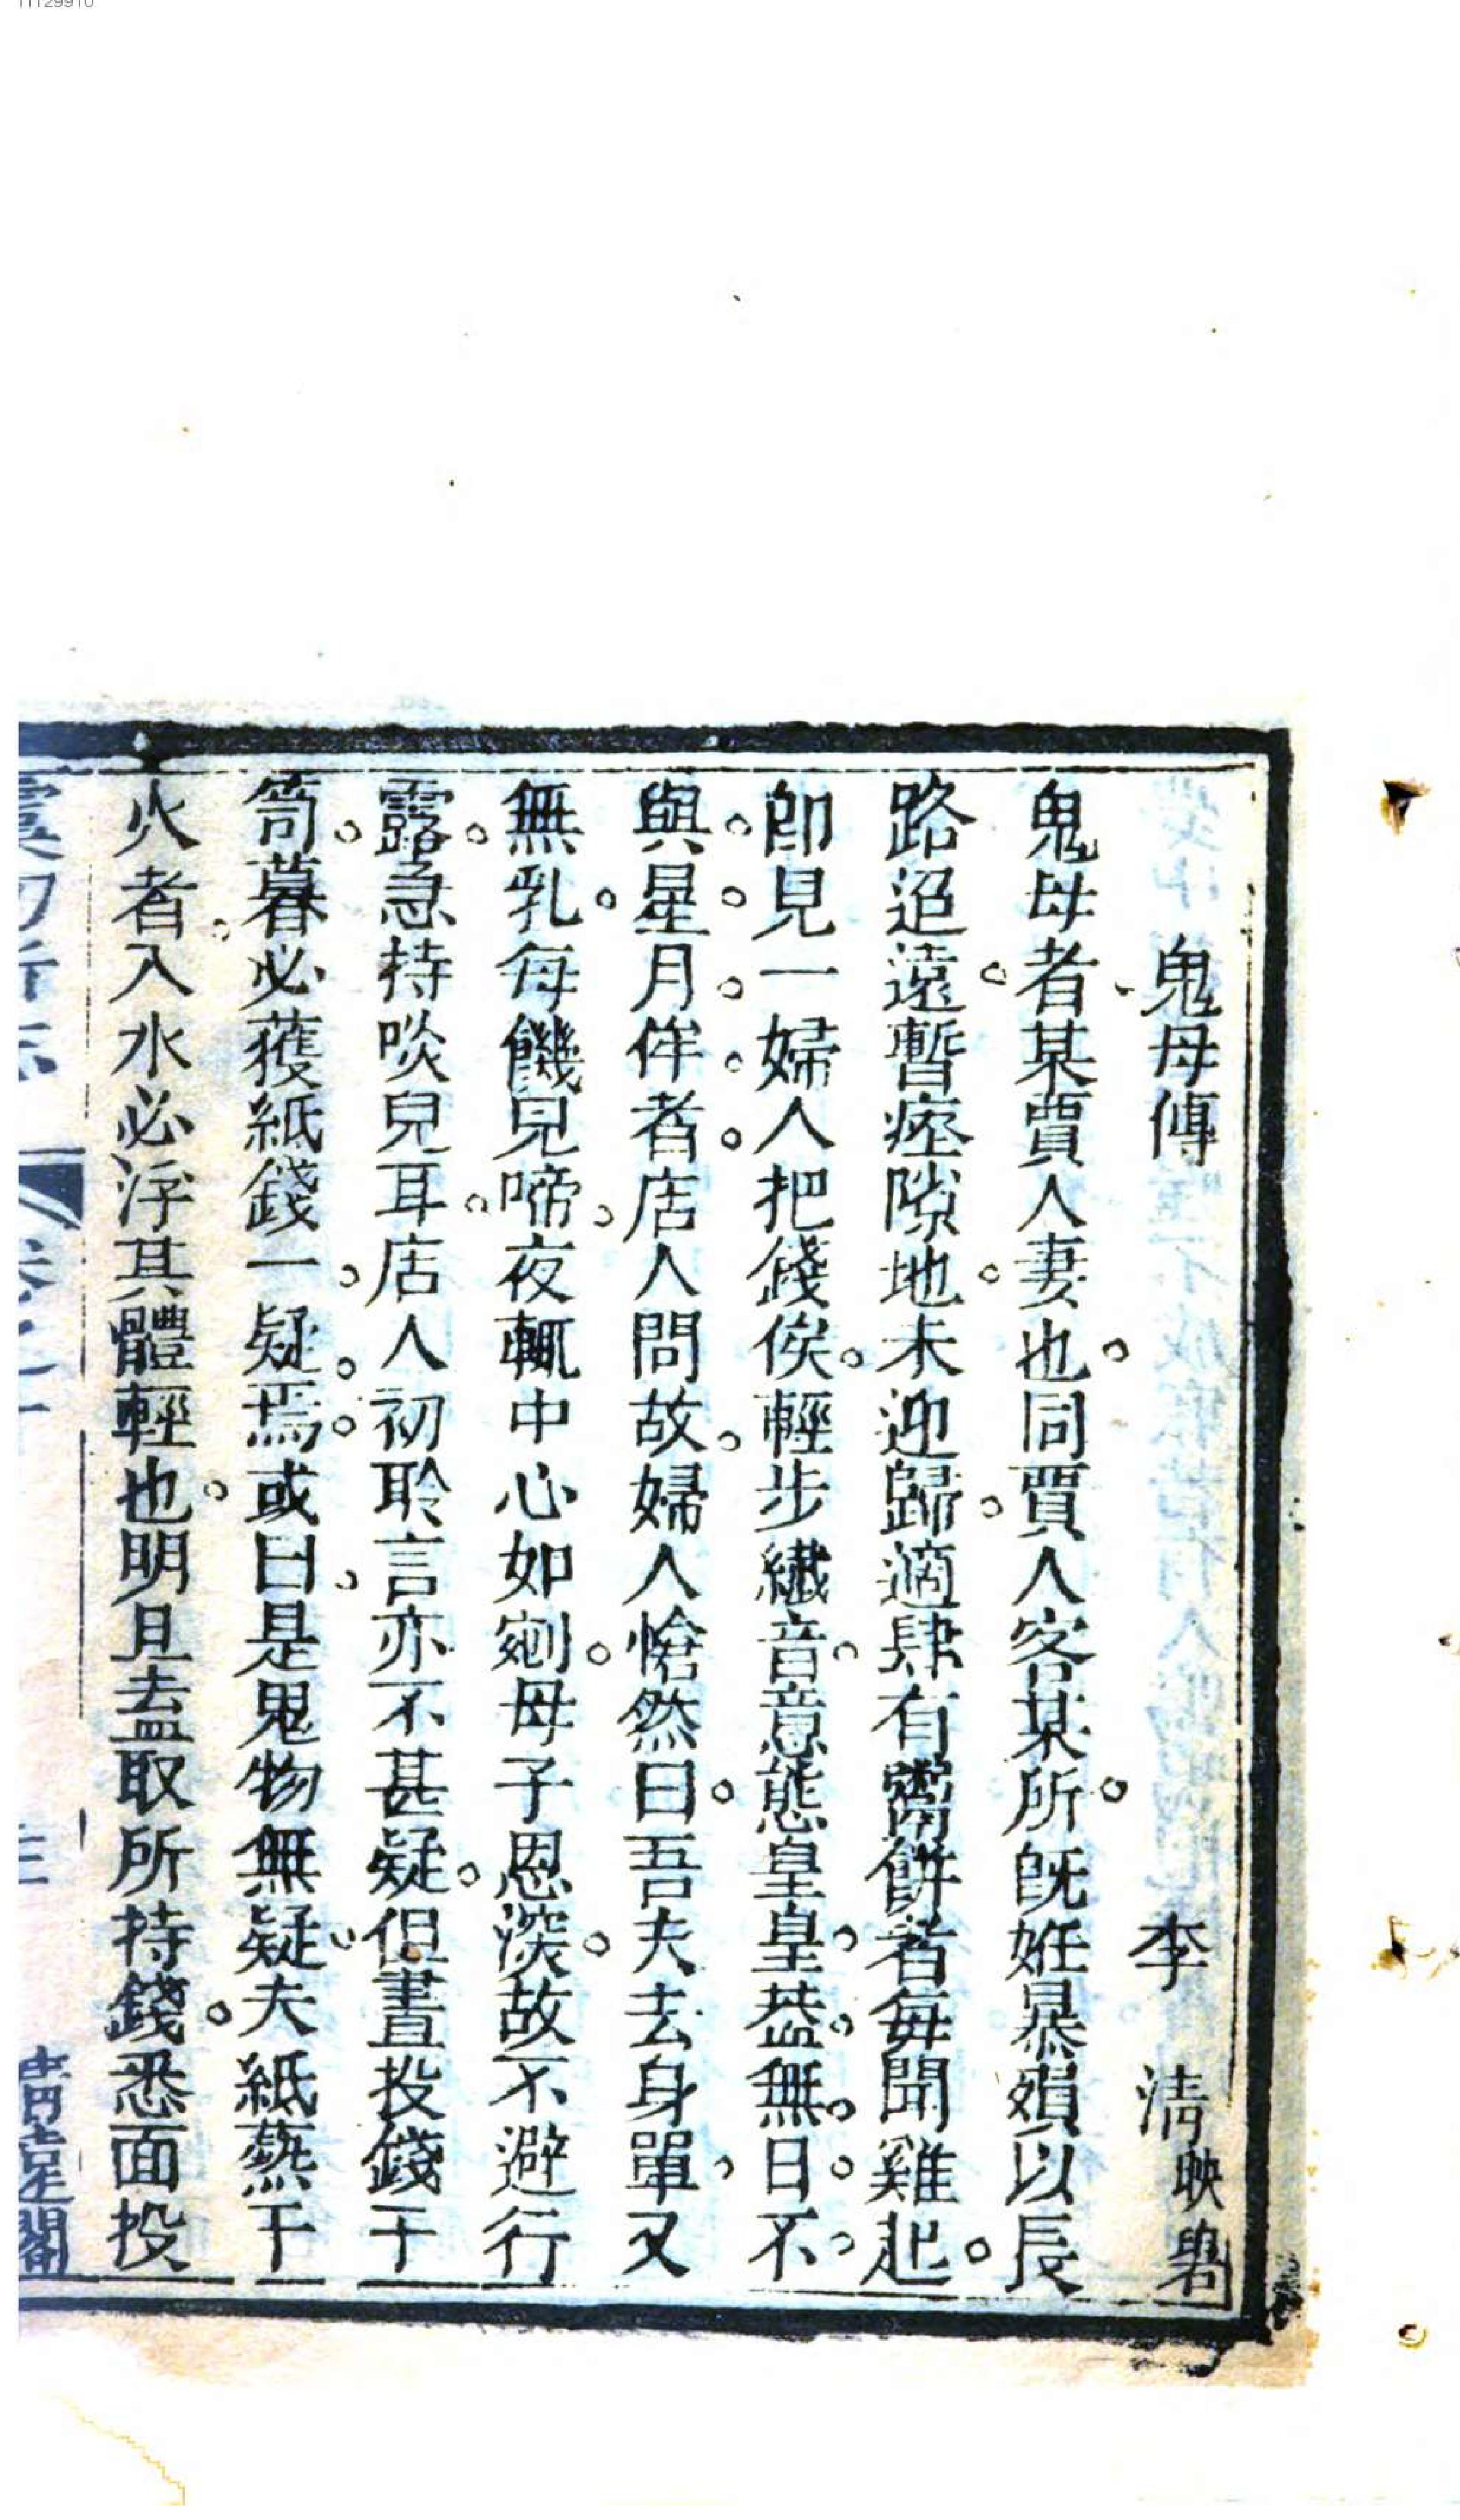 鬼母傳 李 清 映碧
鬼母者某賈人妻也。同賈人客某所。旣姙暴殞以長
路迢遠。暫瘞隙地。未迎歸。適肆有鬻餅者每聞雞起。
卽見一婦人把錢俟。輕步纎音。意態皇皇。葢無日不
與星月侔者。店人問故。婦人愴然曰。吾夫去身單又
無乳。每饑兒啼。夜輒中心如剜。母子恩深。故不避行
露。急持啖兒耳。店人初聆言亦不甚疑。但晝投錢于
笥。暮必獲紙錢一。疑焉。或曰。是鬼物無疑。夫紙爇于
火者。入水必浮其體輕也。明旦盍取所持錢。悉面投
虞初新志 卷之十 三